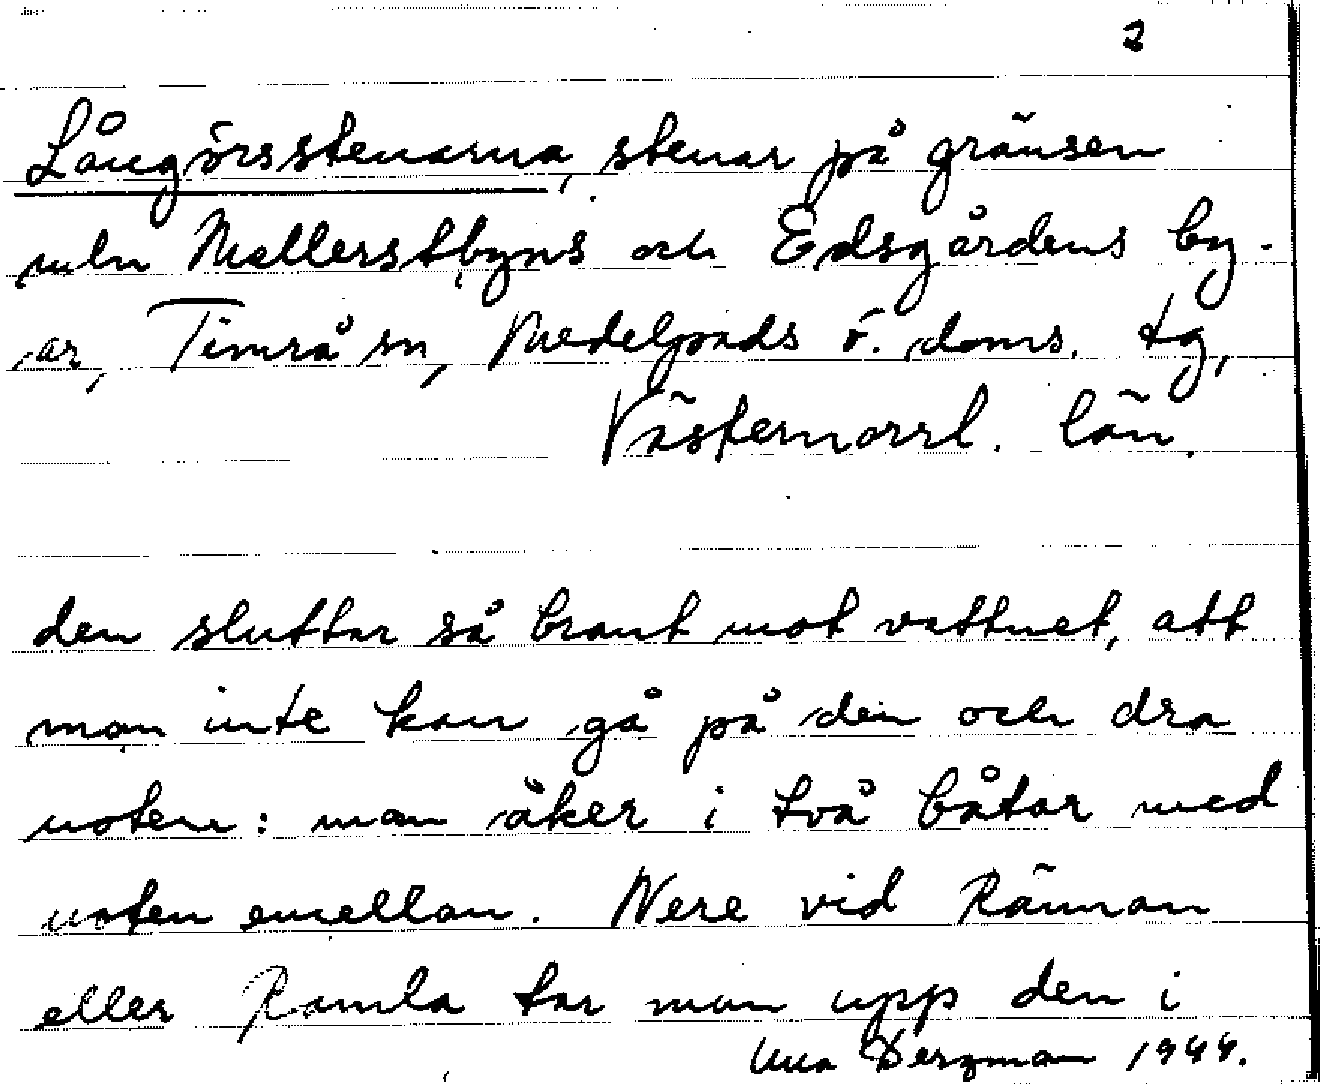 2
Långörsstenarna, stenar på gränsen
mln Mellerstbyns och Edsgårdens by-
ar, Timrå sn, Medelpads ö. doms. tg,
Västernorrl. län.
den sluttar så brant mot vattnet, att
man inte kan gå på den och dra
noten: man åker i två båtar med
noten emellan. Nere vid Rännan
eller Ramla tar man upp den i
Una Bergman 1944.